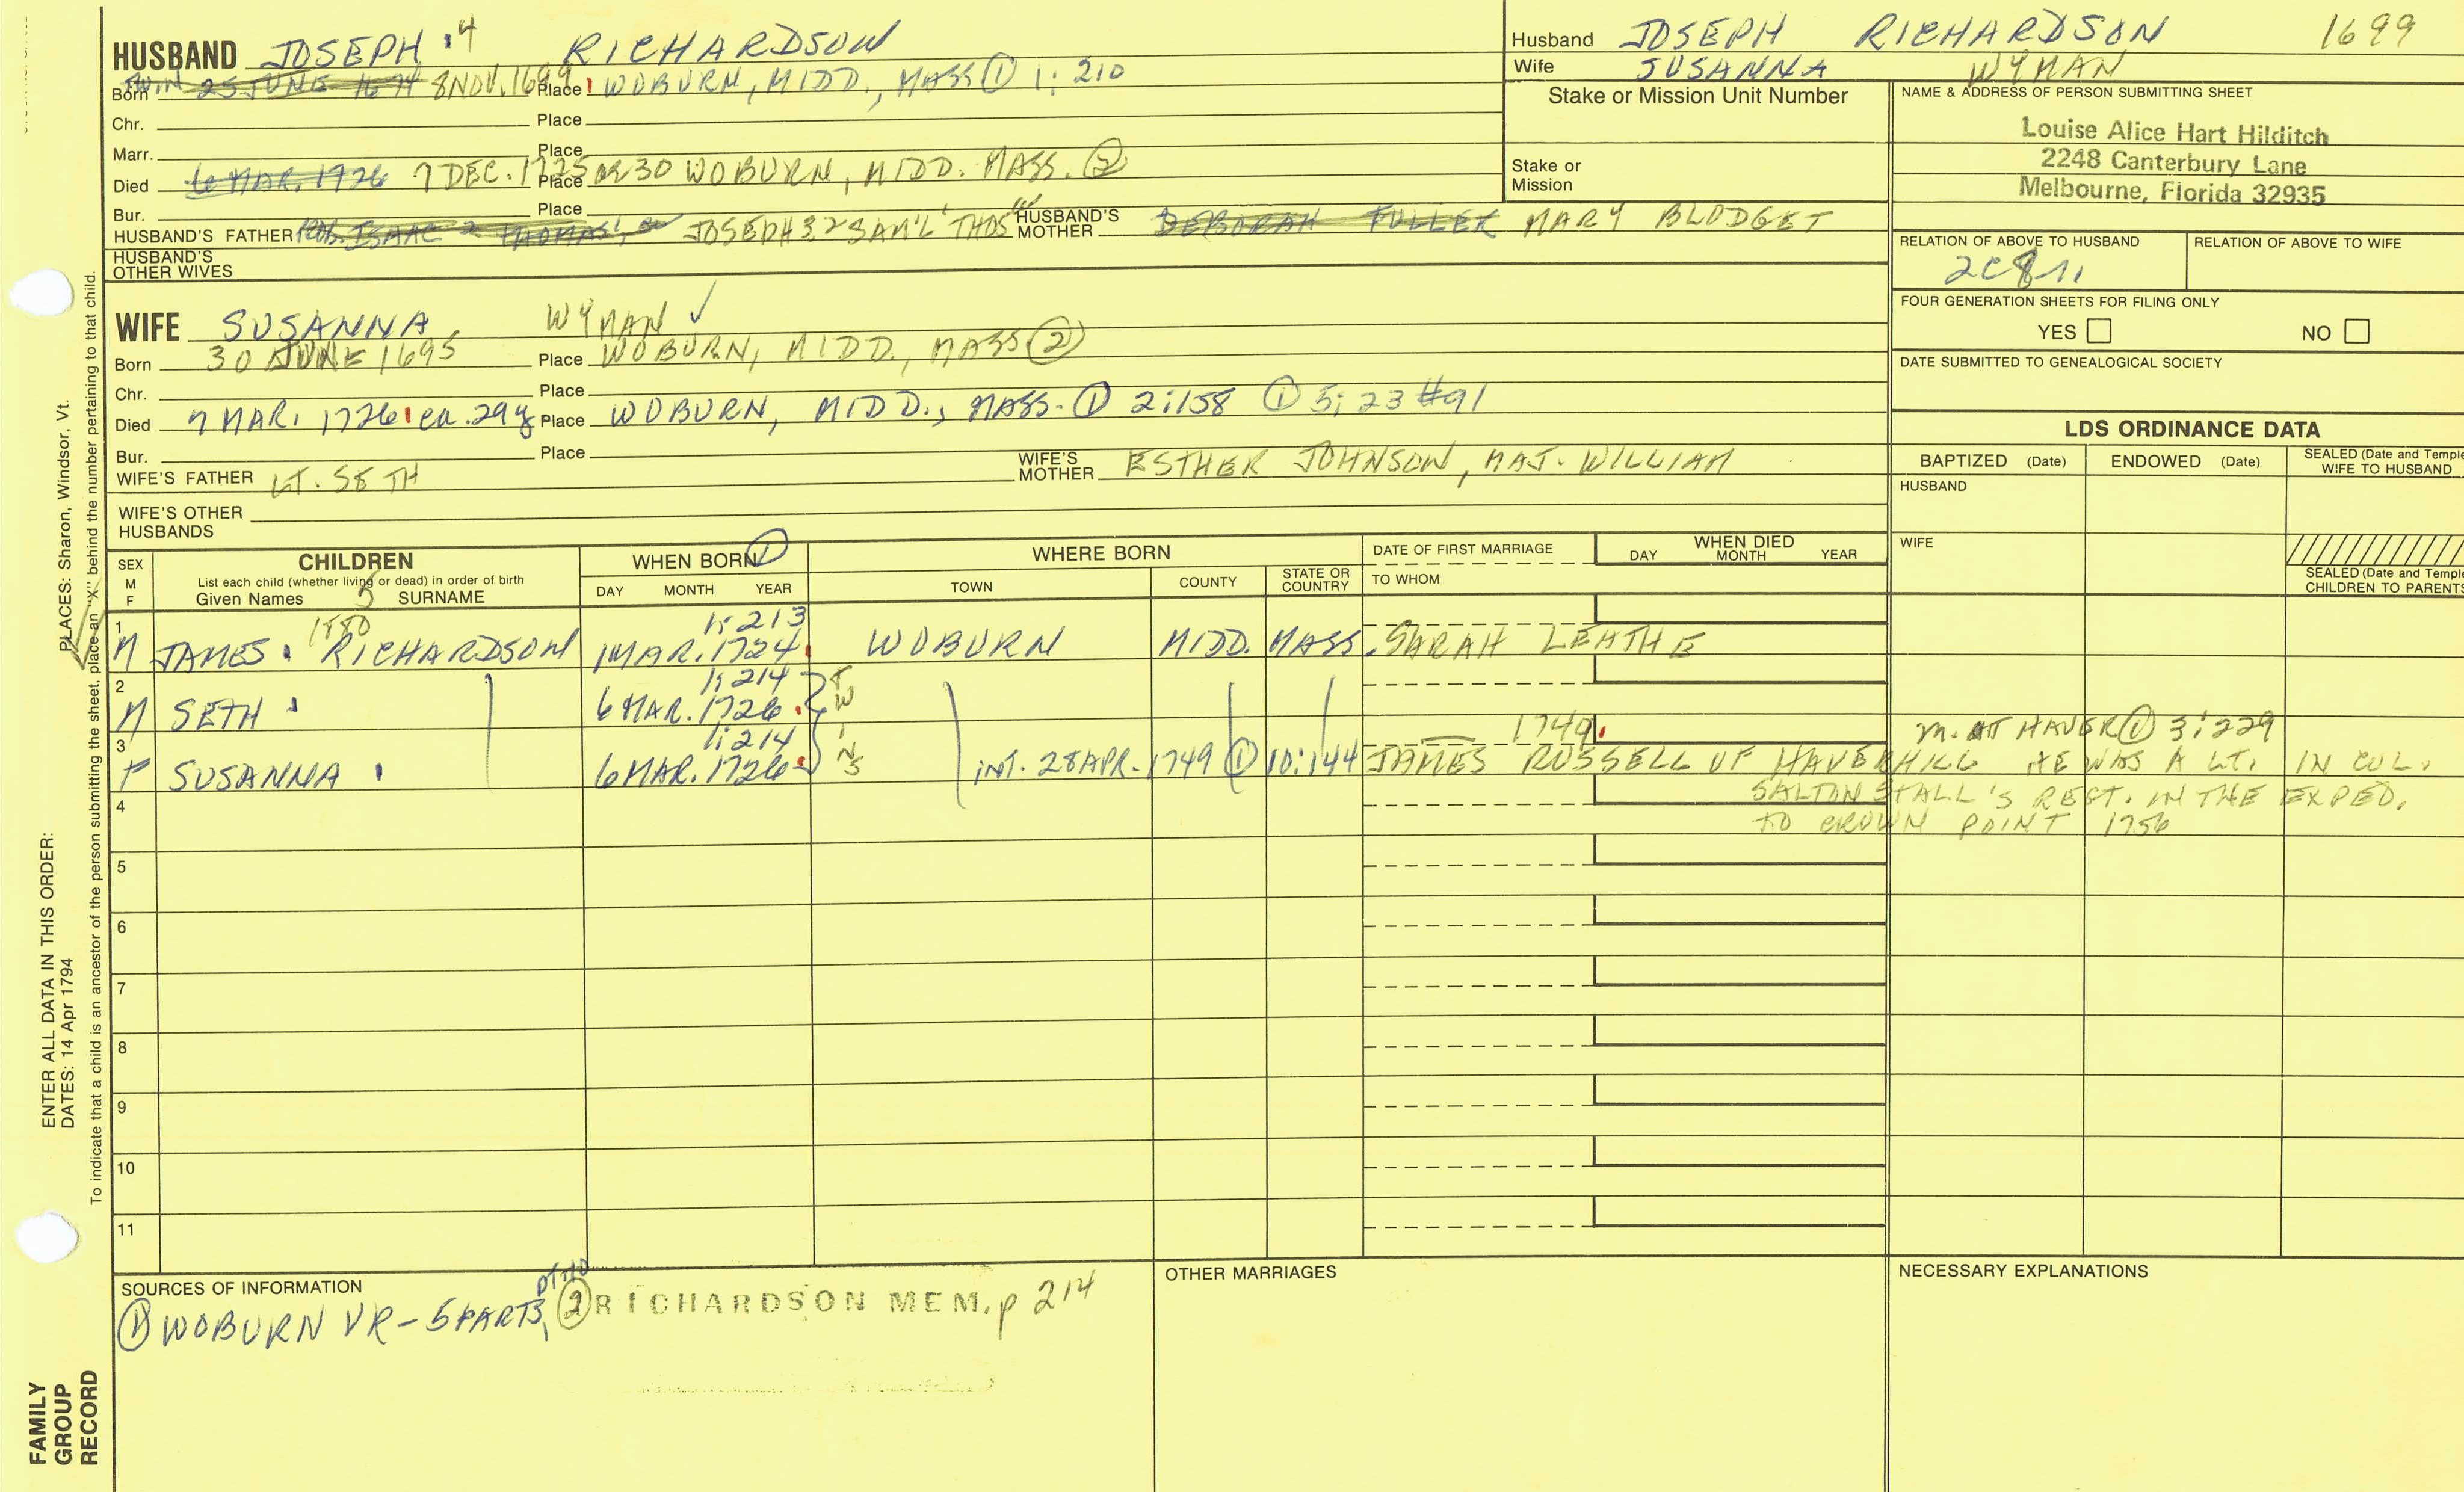 HUSBAND JOSEPH 4 RICHARDSON
Born TWIN 25 JUNE 1674 8 NOV. 1699 Place WOBURN, MIDD., MASS ① 1: 210
Chr. Place
Marr. Place
Died 6 MAR. 1726 7 DEC. 1725 OR 30 Place WOBURN, MIDD. MASS. ②
Bur. Place
HUSBAND'S FATHER ISAAC 2 THOMAS JOSEPH 3,2 SAM'L THOS HUSBAND'S MOTHER DEBORAH FULLER MARY BLODGET
HUSBAND'S OTHER WIVES
Husband JOSEPH RICHARDSON 1699
Wife SUSANNA WYMAN
Stake or Mission Unit Number
Stake or Mission
NAME & ADDRESS OF PERSON SUBMITTING SHEET
Louise Alice Hart Hilditch
2248 Canterbury Lane
Melbourne, Florida 32935
RELATION OF ABOVE TO HUSBAND RELATION OF ABOVE TO WIFE
FOUR GENERATION SHEETS FOR FILING ONLY
YES NO
DATE SUBMITTED TO GENEALOGICAL SOCIETY
WIFE SUSANNA WYMAN ✓
Born 30 JUNE 1695 Place WOBURN, MIDD., MASS ②
Chr. Place
Died 7 MAR. 1726 ca. 29y Place WOBURN, MIDD., MASS. ① 2:158 ① 5; 23 #91
Bur. Place
WIFE'S FATHER LT. SETH WIFE'S MOTHER ESTHER JOHNSON, MAJ. WILLIAM
WIFE'S OTHER HUSBANDS
LDS ORDINANCE DATA
BAPTIZED (Date) ENDOWED (Date) SEALED (Date and Temple WIFE TO HUSBAND
HUSBAND
WIFE
SEALED (Date and Temple CHILDREN TO PARENTS
SEX M F
CHILDREN
List each child (whether living or dead) in order of birth
Given Names 5 SURNAME
WHEN BORN ①
DAY MONTH YEAR
WHERE BORN
TOWN COUNTY STATE OR COUNTRY
DATE OF FIRST MARRIAGE
TO WHOM
WHEN DIED
DAY MONTH YEAR
1 1:213
M JAMES RICHARDSON 1 MAR. 1724 WOBURN MIDD. MASS. SARAH LEATHE
2 1:214
M SETH 6 MAR. 1726
3 1:214 1749 m. AT HAVER ① 3:229
F SUSANNA 6 MAR. 1726 INT. 28 APR. 1749 ① 10:144 JAMES RUSSELL OF HAVERHILL HE WAS A LT. IN COL.
TWINS
4 SALTONSTALL'S REGT. IN THE EXPED.
TO CROWN POINT 1756
5
6
7
8
9
10
11
SOURCES OF INFORMATION
① WOBURN VR - 5 PARTS, ② RICHARDSON MEM. p 214
OTHER MARRIAGES
NECESSARY EXPLANATIONS
ENTER ALL DATA IN THIS ORDER:
DATES: 14 Apr 1794
PLACES: Sharon, Windsor, Vt.
To indicate that a child is an ancestor of the person submitting the sheet, place an "X" behind the number pertaining to that child.
FAMILY
GROUP
RECORD